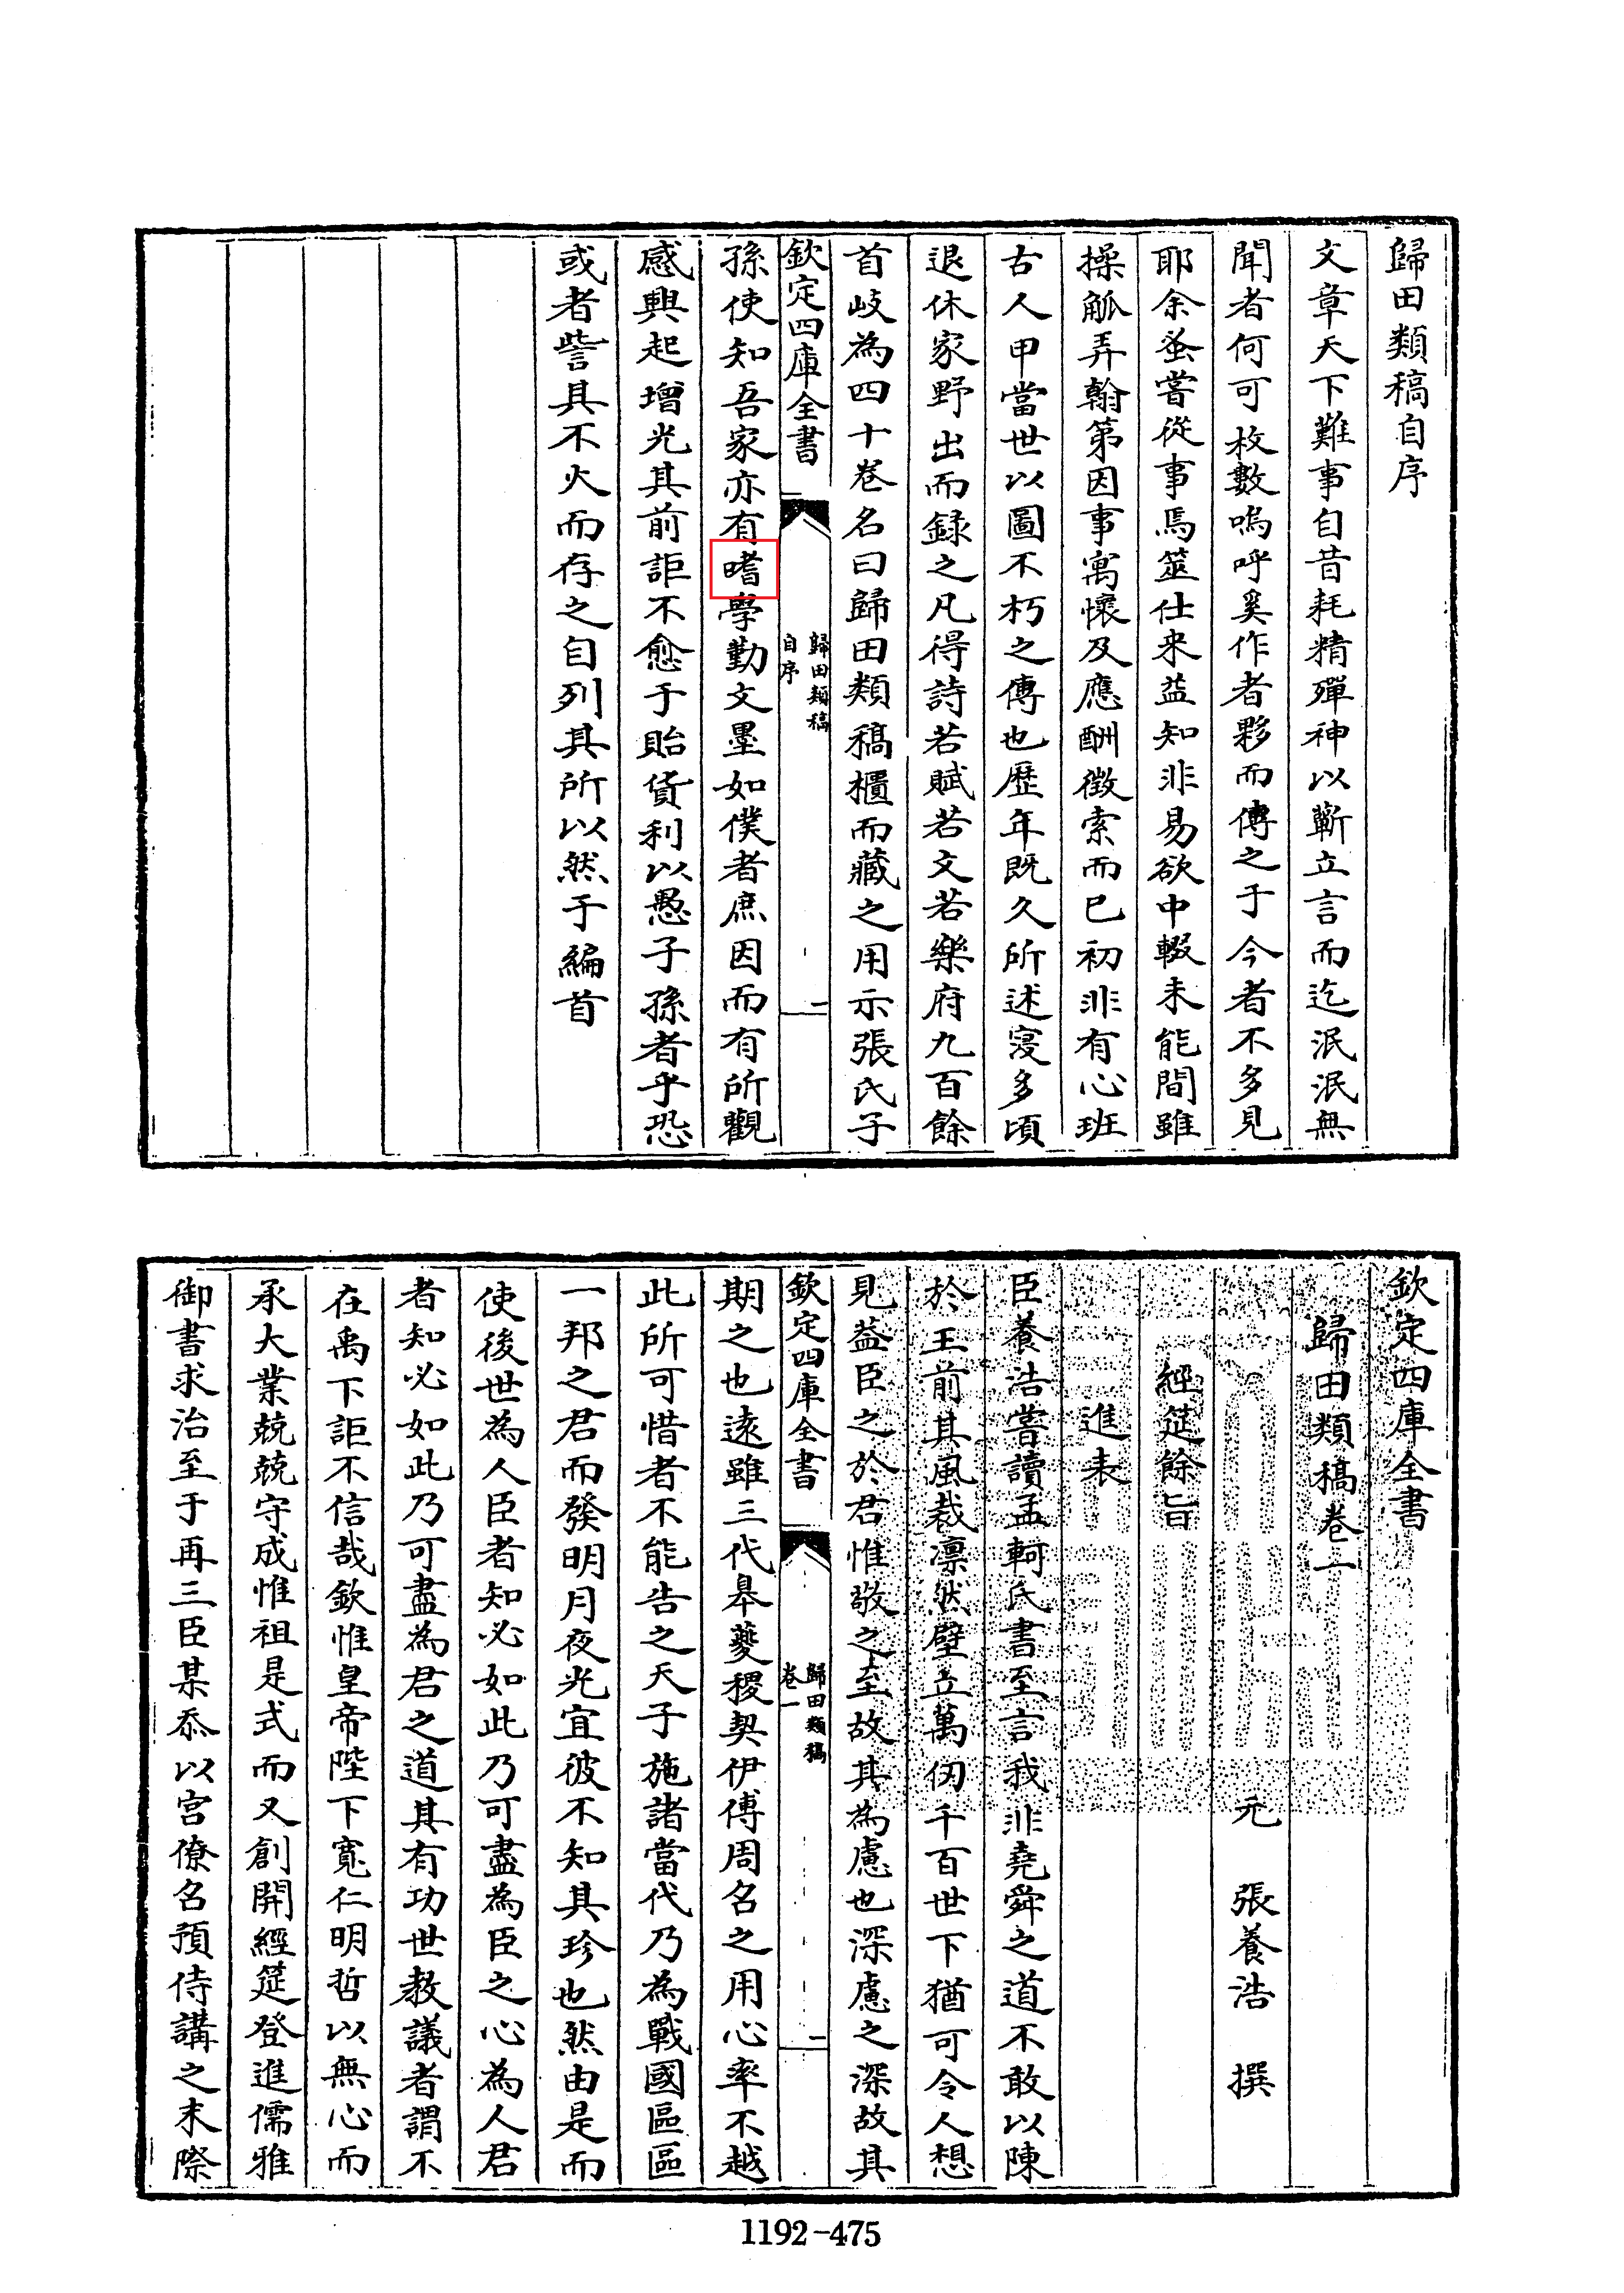 歸田類稿自序
文章天下難事自昔耗精殫神以蘄立言而迄泯泯無
聞者何可枚數嗚呼奚作者夥而傳之于今者不多見
耶余蚤嘗從事焉筮仕来益知非易欲中輟未能間雖
操觚弄翰第因事寓懷及應酬徴索而已初非有心班
古人甲當世以圖不朽之傳也歴年既久所述寖多頃
退休家野出而録之凡得詩若賦若文若樂府九百餘
首岐為四十卷名曰歸田類稿櫃而藏之用示張氏子
欽定四庫全書
歸田類稿
自序
一
孫使知吾家亦有嗜學勤文墨如僕者庶因而有所觀
感興起增光其前詎不愈于貽貨利以愚子孫者乎恐
或者訾其不火而存之自列其所以然于編首
欽定四庫全書
歸田類稿卷一
元 張養浩 撰
經筵餘旨
進表
臣養浩嘗讀孟軻氏書至言我非堯舜之道不敢以陳
於王前其風裁凛然壁立萬仞千百世下猶可令人想
見益臣之於君惟敬之至故其為慮也深慮之深故其
欽定四庫全書
歸田類稿
卷一
一
期之也逺雖三代皋夔稷契伊傅周名之用心率不越
此所可惜者不能告之天子施諸當代乃為戰國區區
一邦之君而發明月夜光宜彼不知其珍也然由是而
使後世為人臣者知必如此乃可盡為臣之心為人君
者知必如此乃可盡為君之道其有功世教議者謂不
在禹下詎不信哉欽惟皇帝陛下寛仁明哲以無心而
承大業兢兢守成惟祖是式而又創開經筵登進儒雅
御書求治至于再三臣某忝以宫僚名預侍講之末際
1192-475